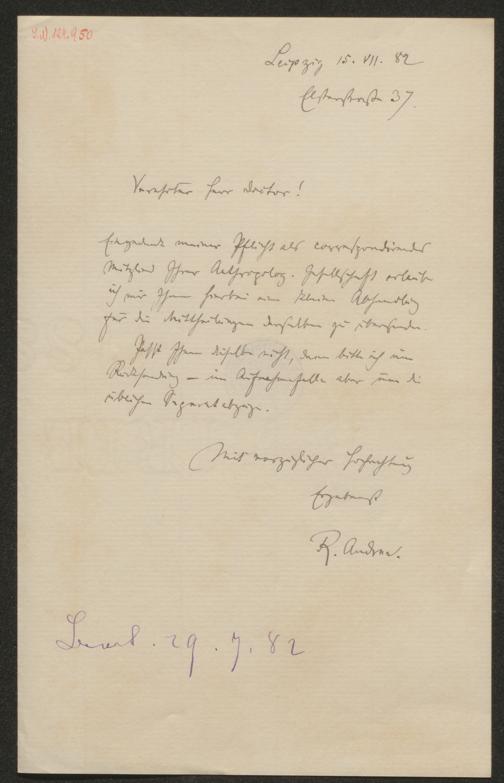 I.N. 124.950
Leipzig 15. VII. 82
Elsterstraße 37.
Verehrter Herr Doctor!
Eingedenk meiner Pflicht als correspondirendes
Mitglied Ihrer Anthropolog. Gesellschaft erlaube
ich mir Ihnen hierbei eine kleine Abhandlung
für die Mittheilungen derselben zu übersenden.
Paßt Ihnen dieselbe nicht, dann bitte ich um
Rücksendung – im Aufnahmefalle aber um die
üblichen Separatabzüge.
Mit vorzüglicher Hochachtung
Ergebenst
R. Andree.
29. 7. 82